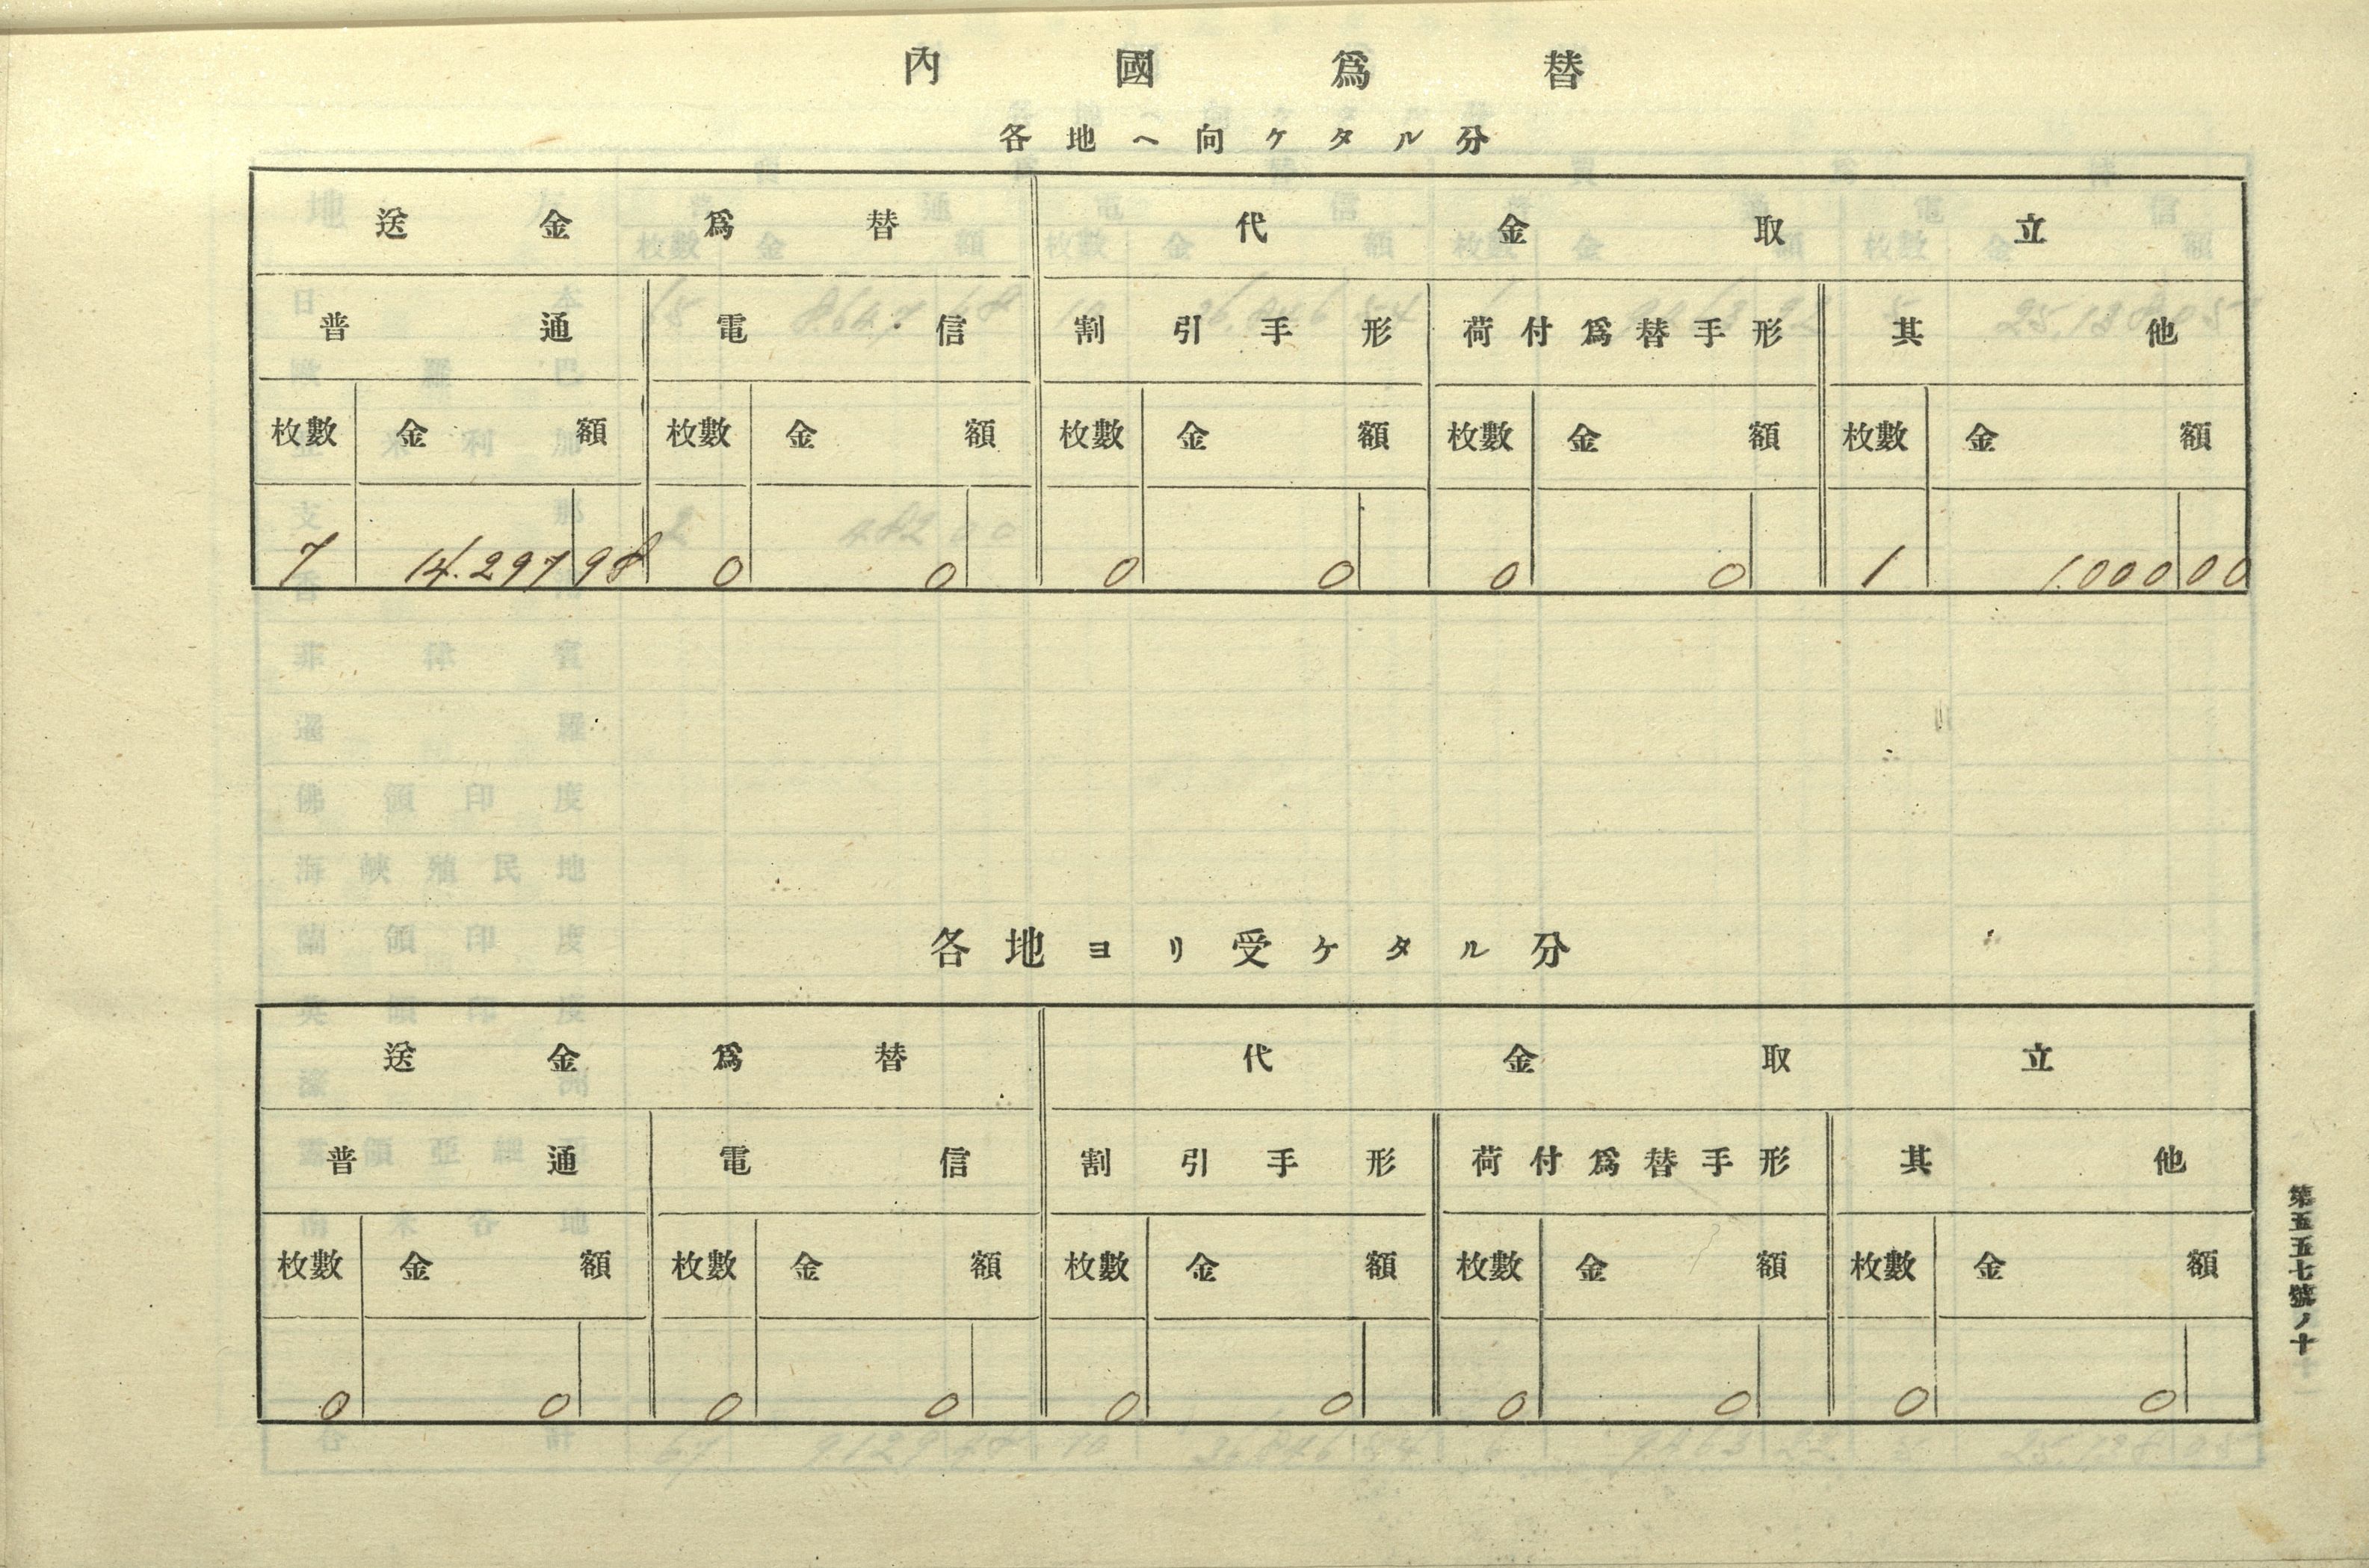 內國爲替
各地ヘ向ケタル分
送金爲替 代金取立
普通 電信 割引手形 荷付爲替手形 其他
枚數 金額 枚數 金額 枚數 金額 枚數 金額 枚數 金額
7 14.297 98 0 0 0 0 0 0 1 1.000 00
各地ヨリ受ケタル分
送金爲替 代金取立
普通 電信 割引手形 荷付爲替手形 其他
枚數 金額 枚數 金額 枚數 金額 枚數 金額 枚數 金額
0 0 0 0 0 0 0 0 0 0
第五五七號ノ十